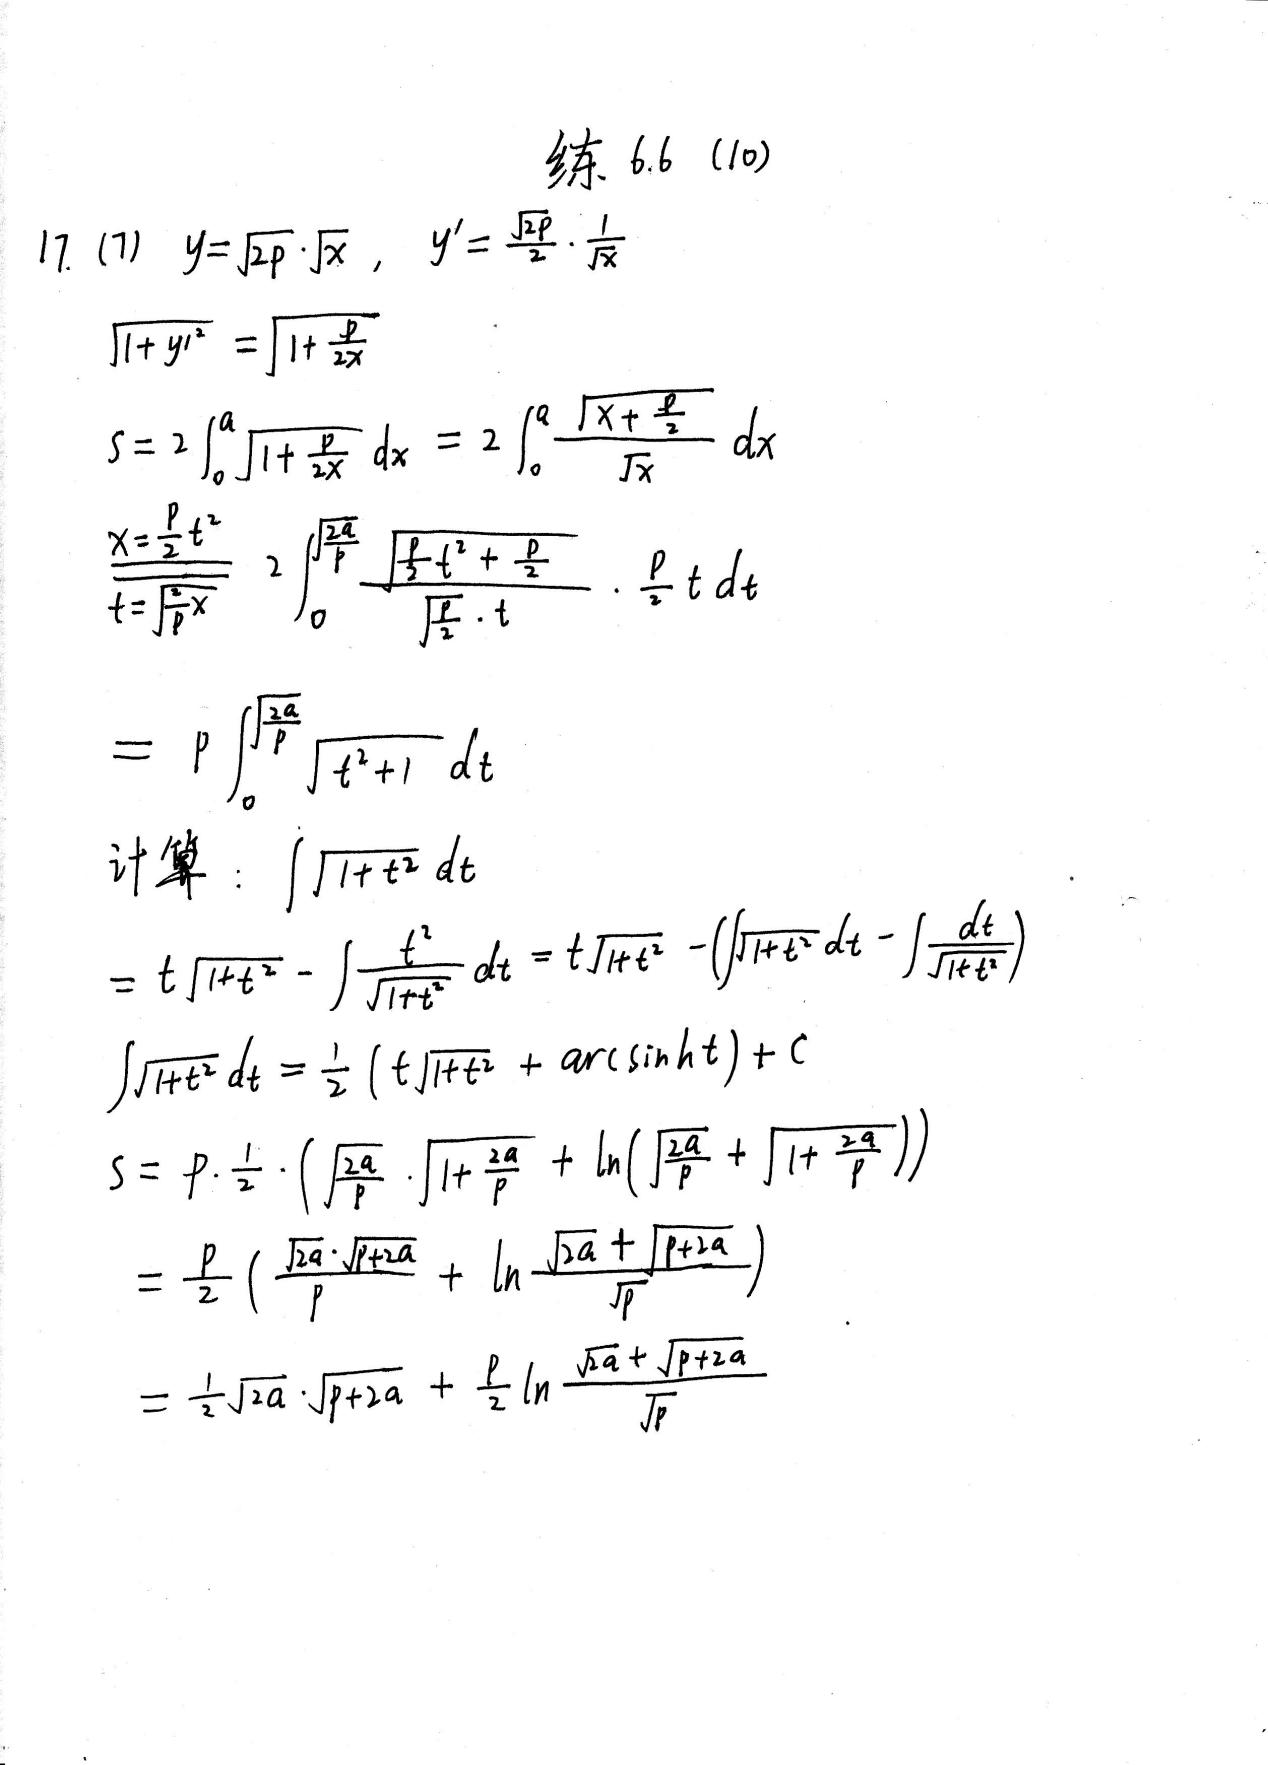 练 6.6 (10)
17. (7) y=√2p·√x, y'=√2p/2 · 1/√x
√(1+y'²) = √(1+p/2x)
S=2∫₀ᵃ √(1+p/2x) dx = 2∫₀ᵃ √(x+p/2)/√x dx
x=p/2 t² t=√(2/p x) 2∫₀^√(2a/p) √(p/2 t²+p/2)/(√(p/2)·t) · p/2 t dt
= p∫₀^√(2a/p) √(t²+1) dt
计算: ∫√(1+t²) dt
= t√(1+t²) - ∫ t²/√(1+t²) dt = t√(1+t²) - (∫√(1+t²) dt - ∫ dt/√(1+t²))
∫√(1+t²) dt = 1/2 (t√(1+t²) + arcsinht) + C
S = p·1/2·(√(2a/p)·√(1+2a/p) + ln(√(2a/p) + √(1+2a/p)))
= p/2 (√2a·√(p+2a)/p + ln (√2a+√(p+2a))/√p)
= 1/2 √2a·√(p+2a) + p/2 ln (√2a+√(p+2a))/√p